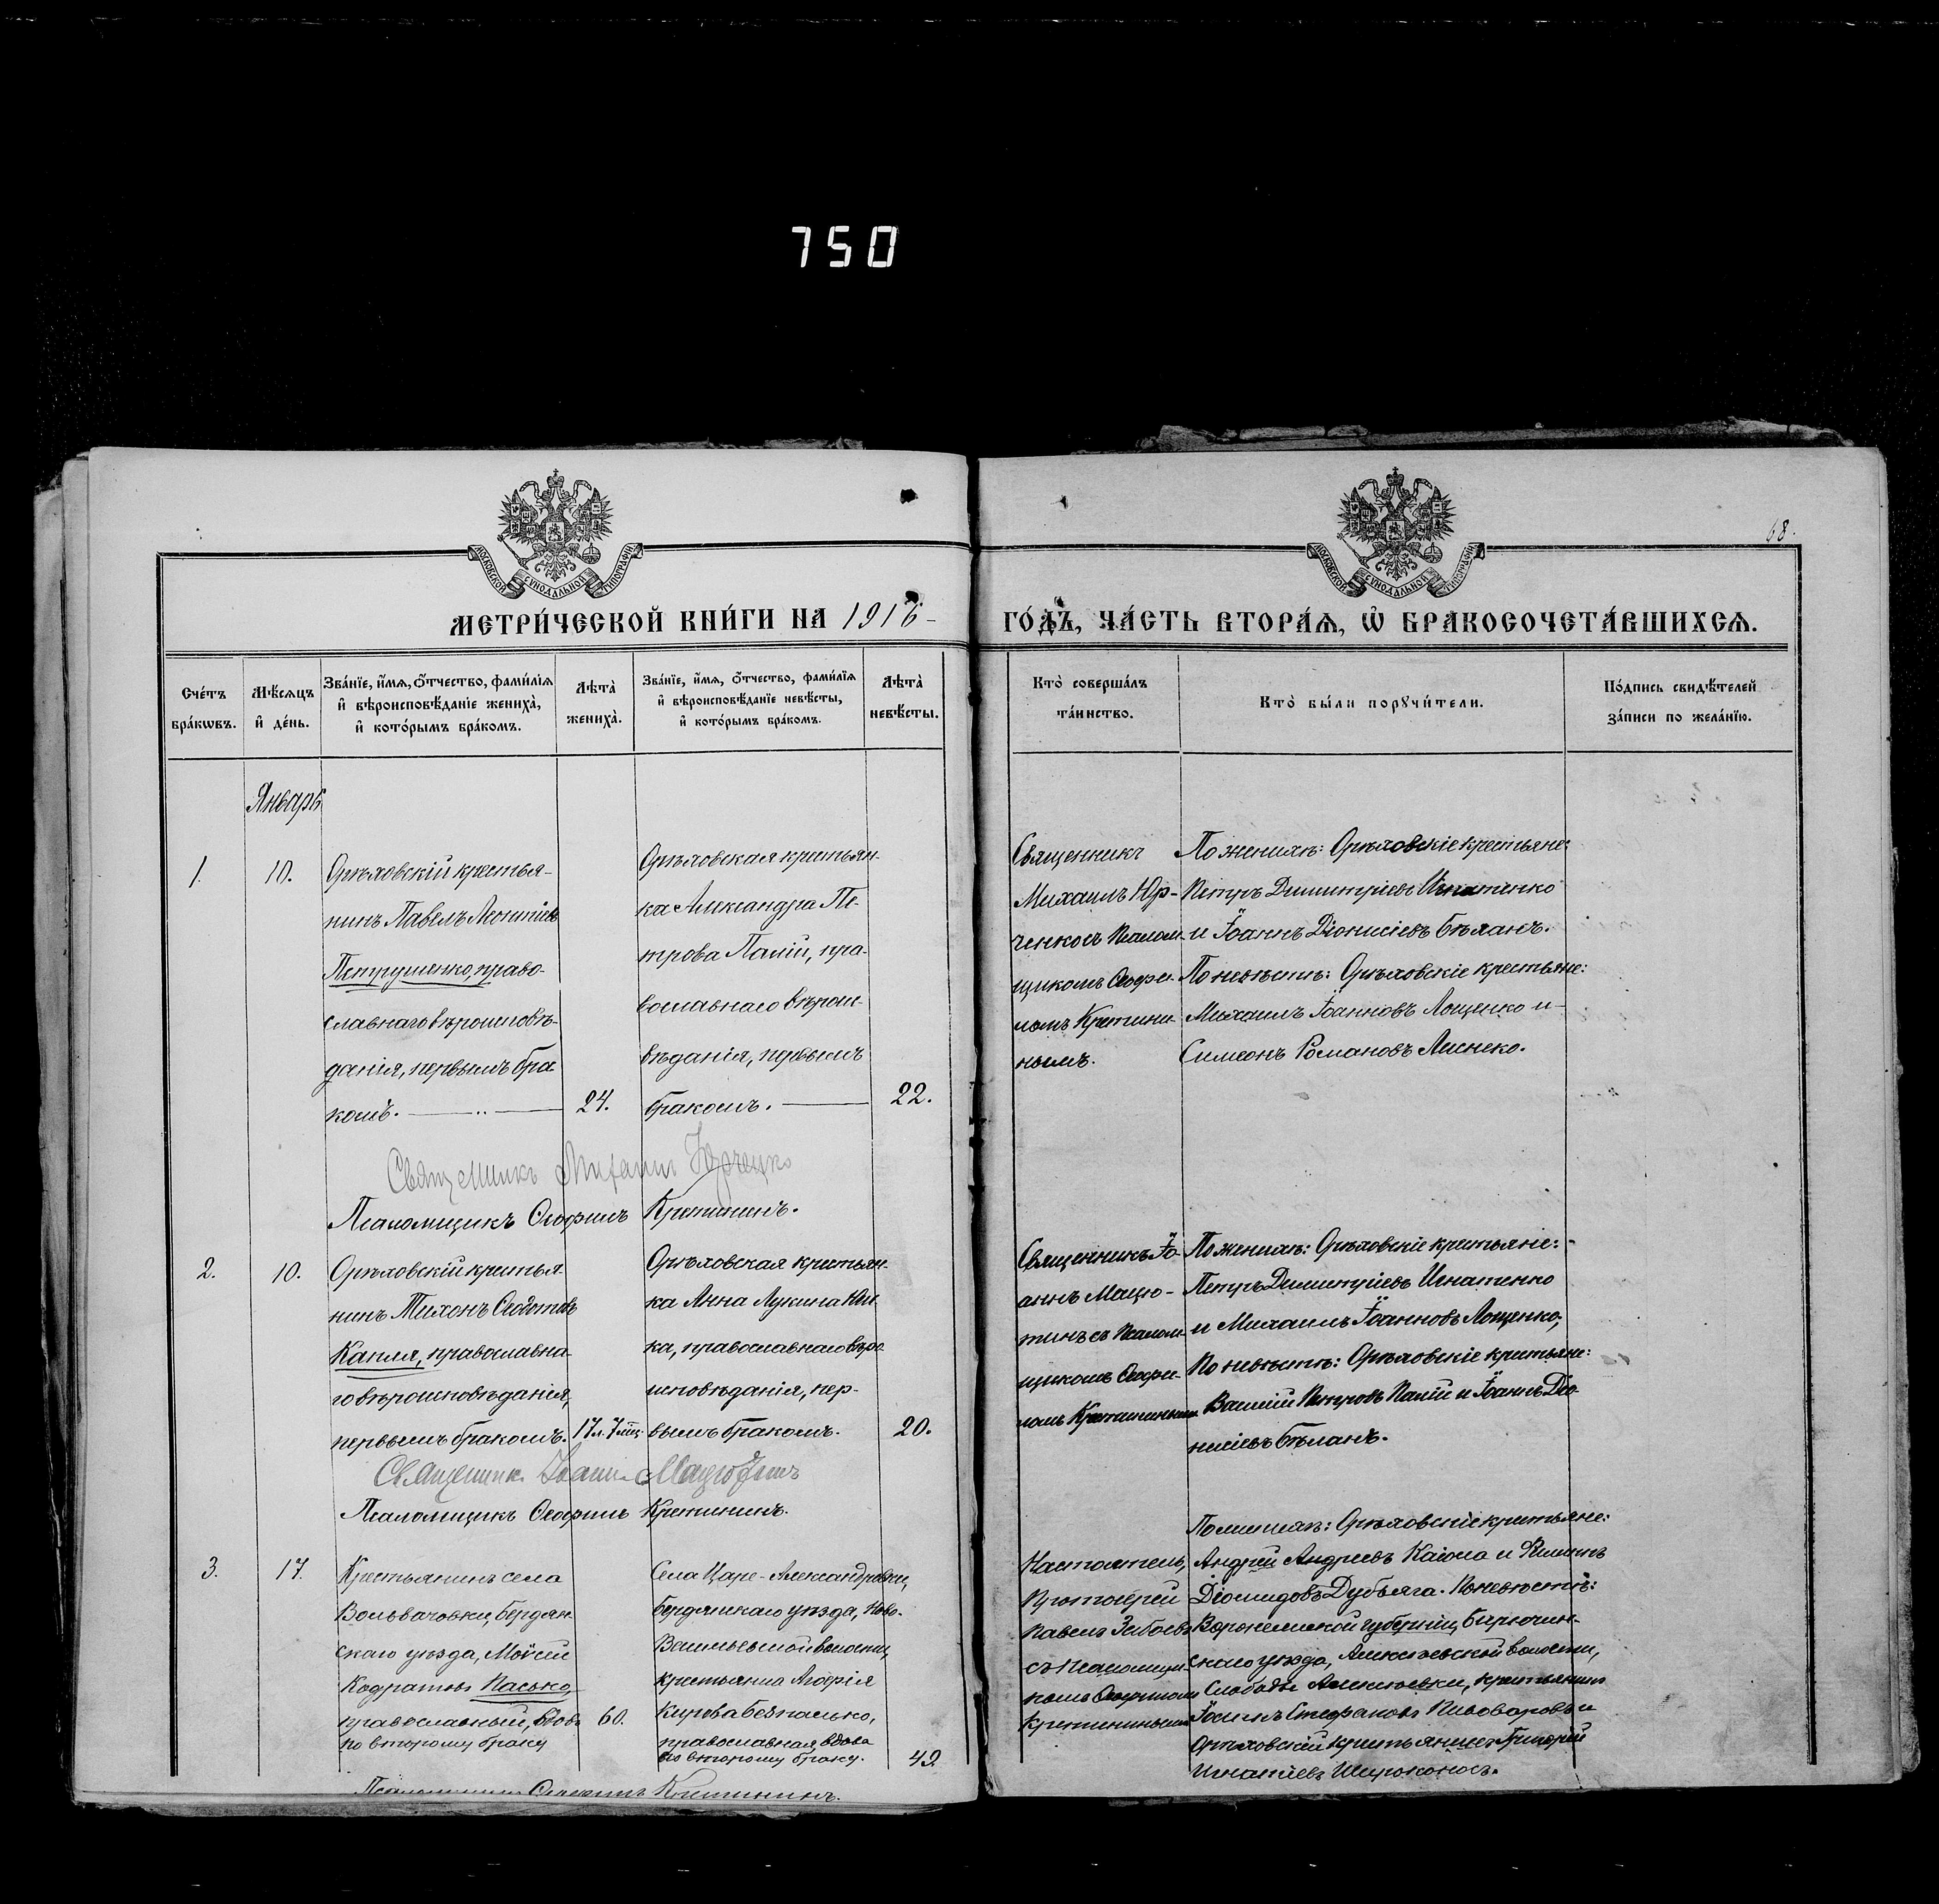 750
68.
МОСКОВСКОЙ СУНОДАЛЬНОЙ ТИПОГРАФІИ
МОСКОВСКОЙ СУНОДАЛЬНОЙ ТИПОГРАФІИ
МЕТРИ́ЧЕСКОЙ КНИ́ГИ НА 1916
ГО́ДЪ, ЧА́СТЬ ВТОРА́Ѧ, Ѡ҆ БРАКОСОЧЕТА́ВШИХСѦ.
Сче́тъ
бра́кѡвъ.
Мѣ́сѧцъ
и҆ де́нь.
Зва́нїе, и҆́мѧ, ѻ҆́тчество, фами́лїѧ
и҆ вѣроисповѣ́данїе жениха̀,
и҆ кото́рымъ бра́комъ.
Лѣта̀
жениха̀.
Зва́нїе, и҆́мѧ, ѻ҆́тчество, фами́лїѧ
и҆ вѣроисповѣ́данїе невѣ́сты,
и҆ кото́рымъ бра́комъ.
Лѣта̀
невѣ́сты.
Кто̀ соверша́лъ
та́инство.
Кто̀ бы́ли порꙋчи́тели.
По́дпись свидѣ́телей
за́писи по жела́нїю.
Январь
1.
10.
Орѣховскій крестья-
нинъ Павелъ Леонтіевъ
Петрушенко, право-
славнаго вѣроисповѣ-
данія, первымъ бра
комъ.
24.
Орѣховская крестьян-
ка Александра Пе-
трова Палій, пра-
вославнаго вѣрои-
вѣданія, первымъ
бракомъ.
22.
Священникъ
Михаилъ Юр-
ченко съ Псалом-
щикомъ Ѳеофи-
ломъ Кретини-
нымъ.
По женихѣ: Орѣховскіе крестьяне:
Петръ Димитріевъ Игнатенко
и Іоаннъ Діонисіевъ Бѣланъ.
По невѣстѣ: Орѣховскіе крестьяне:
Михаилъ Іоанновъ Лощенко и
Симеонъ Романовъ
Священникъ Михаилъ Юрченко
Псаломщикъ Ѳеофилъ Кретининъ.
2.
10.
Орѣховскій крестья
нинъ Тихонъ Ѳедотовъ
Капля, православна
го вѣроисповѣданія,
первымъ бракомъ.
17 л. 7 мѣц.
Орѣховская крестьян-
ка Анна Лукина
ка, православнаго вѣро
исповѣданія, пер-
вымъ бракомъ.
20.
Священникъ Іо-
аннъ Мацю-
тинъ съ Псалом-
щикомъ Ѳеофи-
ломъ Кретининымъ
По женихѣ: Орѣховскіе крестьяне:
Петръ Димитріевъ Игнатенко
и Михаилъ Іоанновъ Лощенко;
По невѣстѣ: Орѣховскіе крестьяне:
Василій Петровъ Палій и Іоаннъ Діо-
нисіевъ Бѣланъ.
Священникъ Іоаннъ Мацютинъ
Псаломщикъ Ѳеофилъ Кретининъ.
3.
17.
Крестьянинъ села
Вольвачовки, Бердян
скаго уѣзда, Моѵсей
Кодратовъ Пасько,
православный, вдовъ
по второму браку
60.
Села Царе-Александровки,
Бердянскаго уѣзда, Ново-
Васильевской волости,
крестьянка
Кирова Безпалько,
православная вдова
по второму браку.
42
Настоятель,
Протоіерей
Павелъ
съ Псаломщи-
комъ Ѳеофиломъ
Кретининымъ
По женихѣ: Орѣховскіе крестьяне:
Андрей Андреевъ и Филиппъ
Діомидовъ Дубъяга. По невѣстѣ:
Воронежской губерніи, Бирючин-
скаго уѣзда, Алексѣевской волости,
Слободы Алексѣевки, крестьянинъ
Іоаннъ Стефановъ Пивоваровъ и
Орѣховскій крестьянинъ Григорій
Игнатіевъ Широконосъ.
Псаломщикъ Ѳеофилъ Кретининъ.